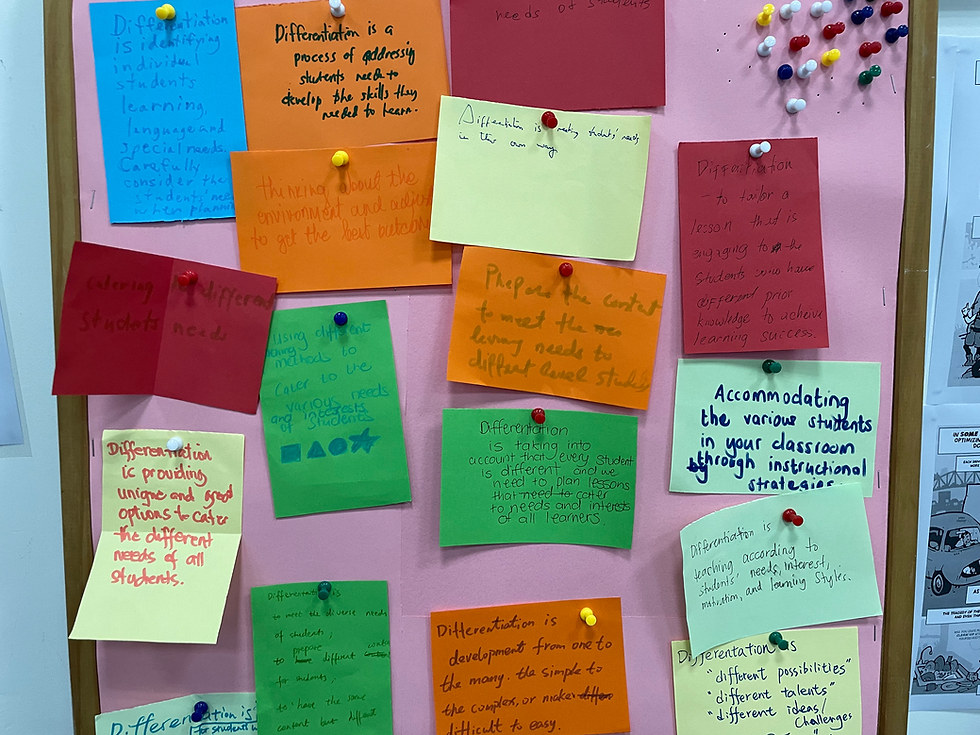 Differentiation
is identifying
individual
students
learning,
language and
special needs.
Carefully
consider the
students'
when
Differentiation is a
process of addressing
students need to
develop the skills they
needed to learn.
needs of students
Differentiation is students' needs
in their own way
thinking about the
environment and
to get the best outcome
Differentiation
- to tailor a
lesson that is
engaging to the
students who have
different prior
knowledge to achieve
learning success.
Catering different
students needs
Prepare the content
to meet the
learning needs to
different level students
Using different
methods to
cater to the
various needs
and interests
of students
Accommodating
the various students
in your classroom
through instructional
strategies.
Differentiation
is taking into
account that every student
is different and we
need to plan lessons
that need to cater
to needs and interests
of all learners.
Differentiation
is providing
unique and good
options to cater
the different
needs of all
students.
Differentiation is
teaching according to
students' needs, interest,
motivation, and learning styles.
Differentiation is
to meet the diverse needs
of students;
prepare
to different
for students;
to have the same
content but different
Differentiation is
development from one to
the many. the simple to
the complex, or make
difficult to easy.
Differentation is
"different possibilities"
"different talents"
"different ideas/
challenges
IN SOME